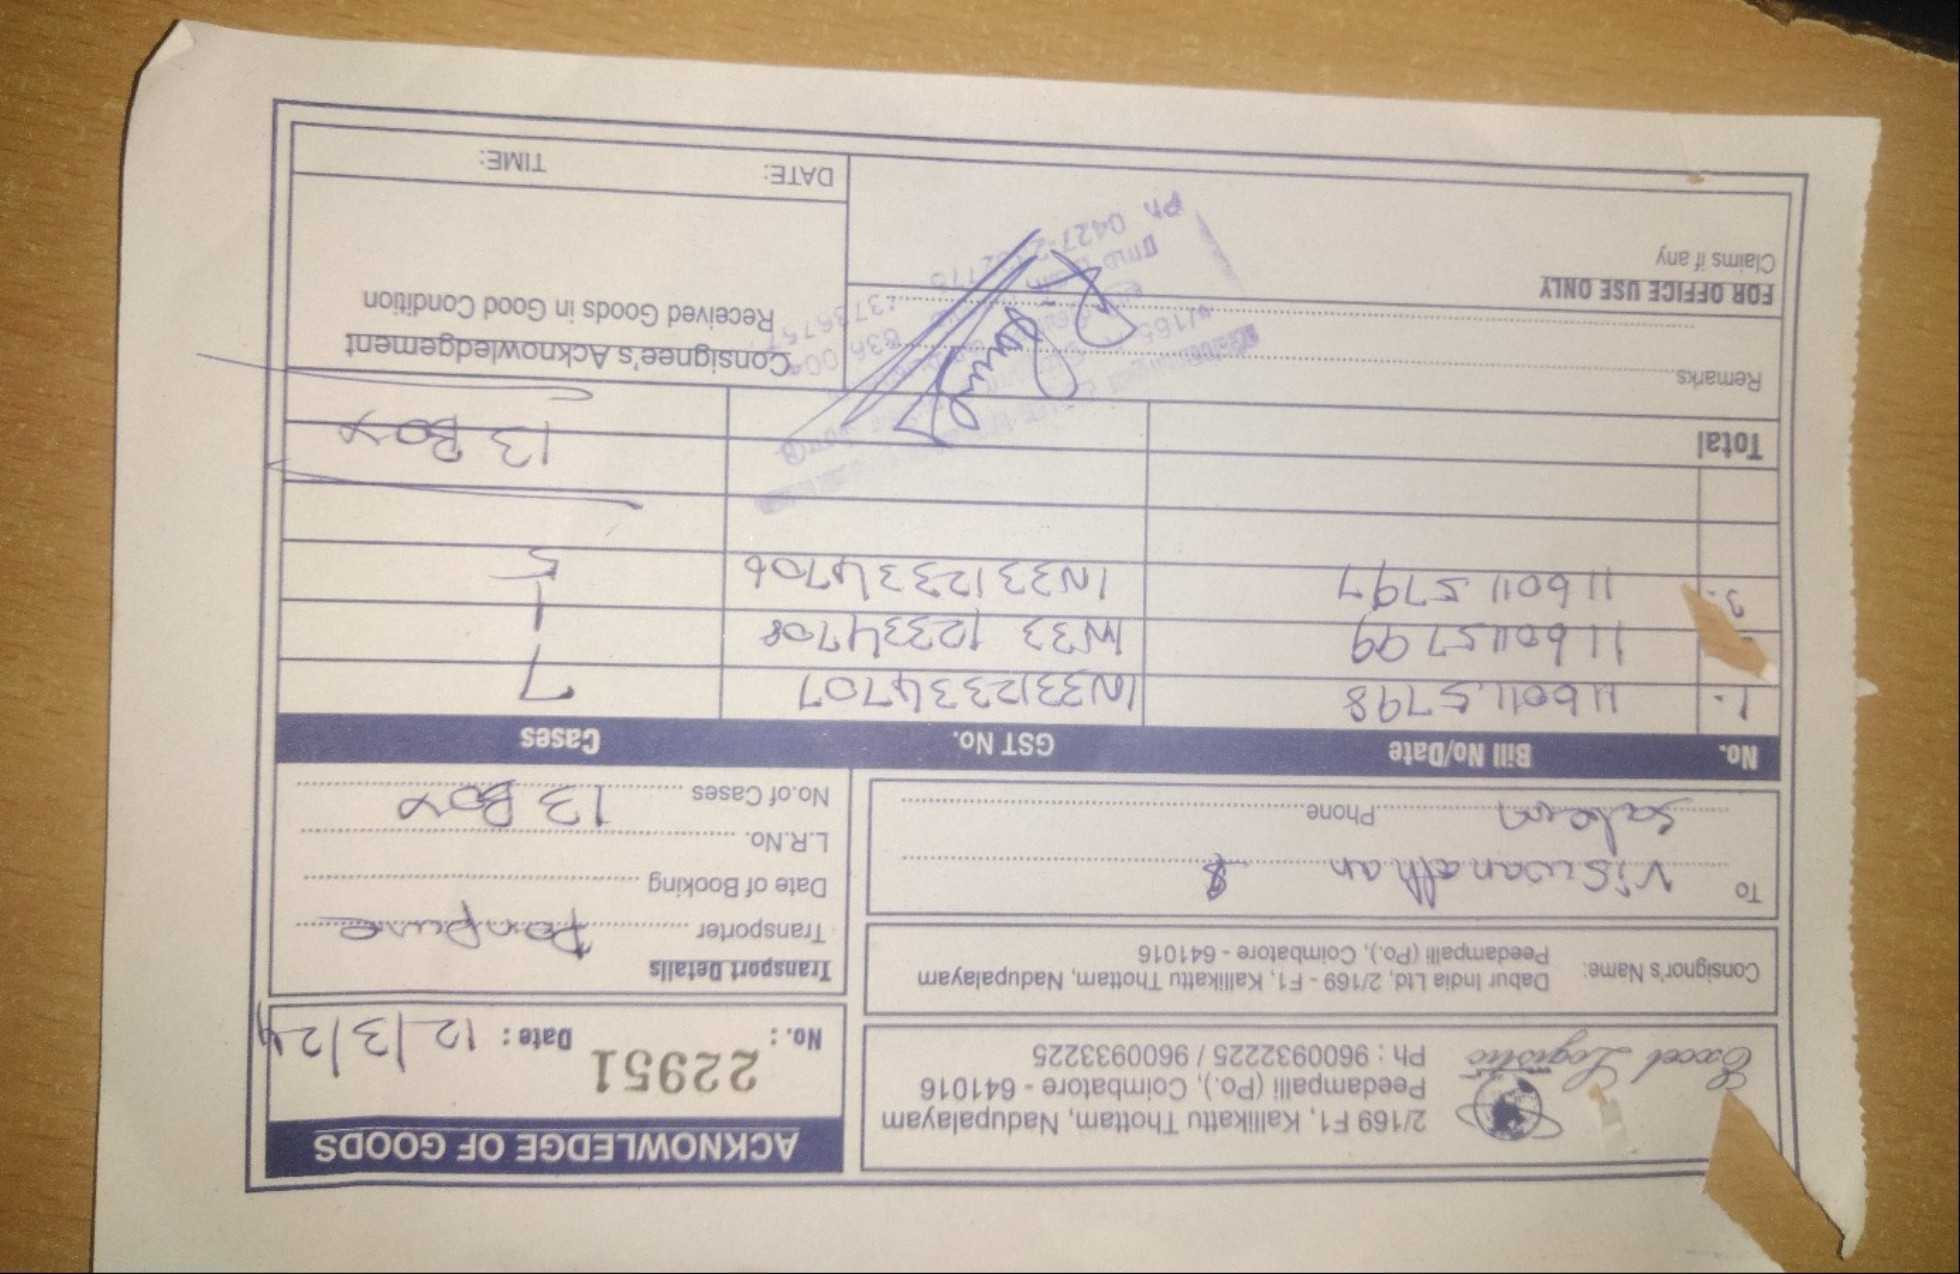 Excel Logistic
2/169 F1, Kallikattu Thottam, Nadupalayam
Peedampalli (Po.), Coimbatore - 641016
Ph : 9600932225 / 9600933225
ACKNOWLEDGE OF GOODS
No. : 22951 Date : 12/3/24
Consignor's Name: Dabur India Ltd, 2/169 - F1, Kallikattu Thottam, Nadupalayam
Peedampalli (Po.), Coimbatore - 641016
Transport Details
Transporter
Date of Booking
L.R.No.
No.of Cases 13 Box
To Viswanathan
Salem Phone
No. Bill No/Date GST No. Cases
1. 116011.5798 IN3312334707 7
1160115799 IN33 12334708 1
3. 116011.5797 IN3312334706 5
Total 13 Box
Remarks
FOR OFFICE USE ONLY
Claims if any
Consignee's Acknowledgement
Received Goods in Good Condition
DATE: TIME: